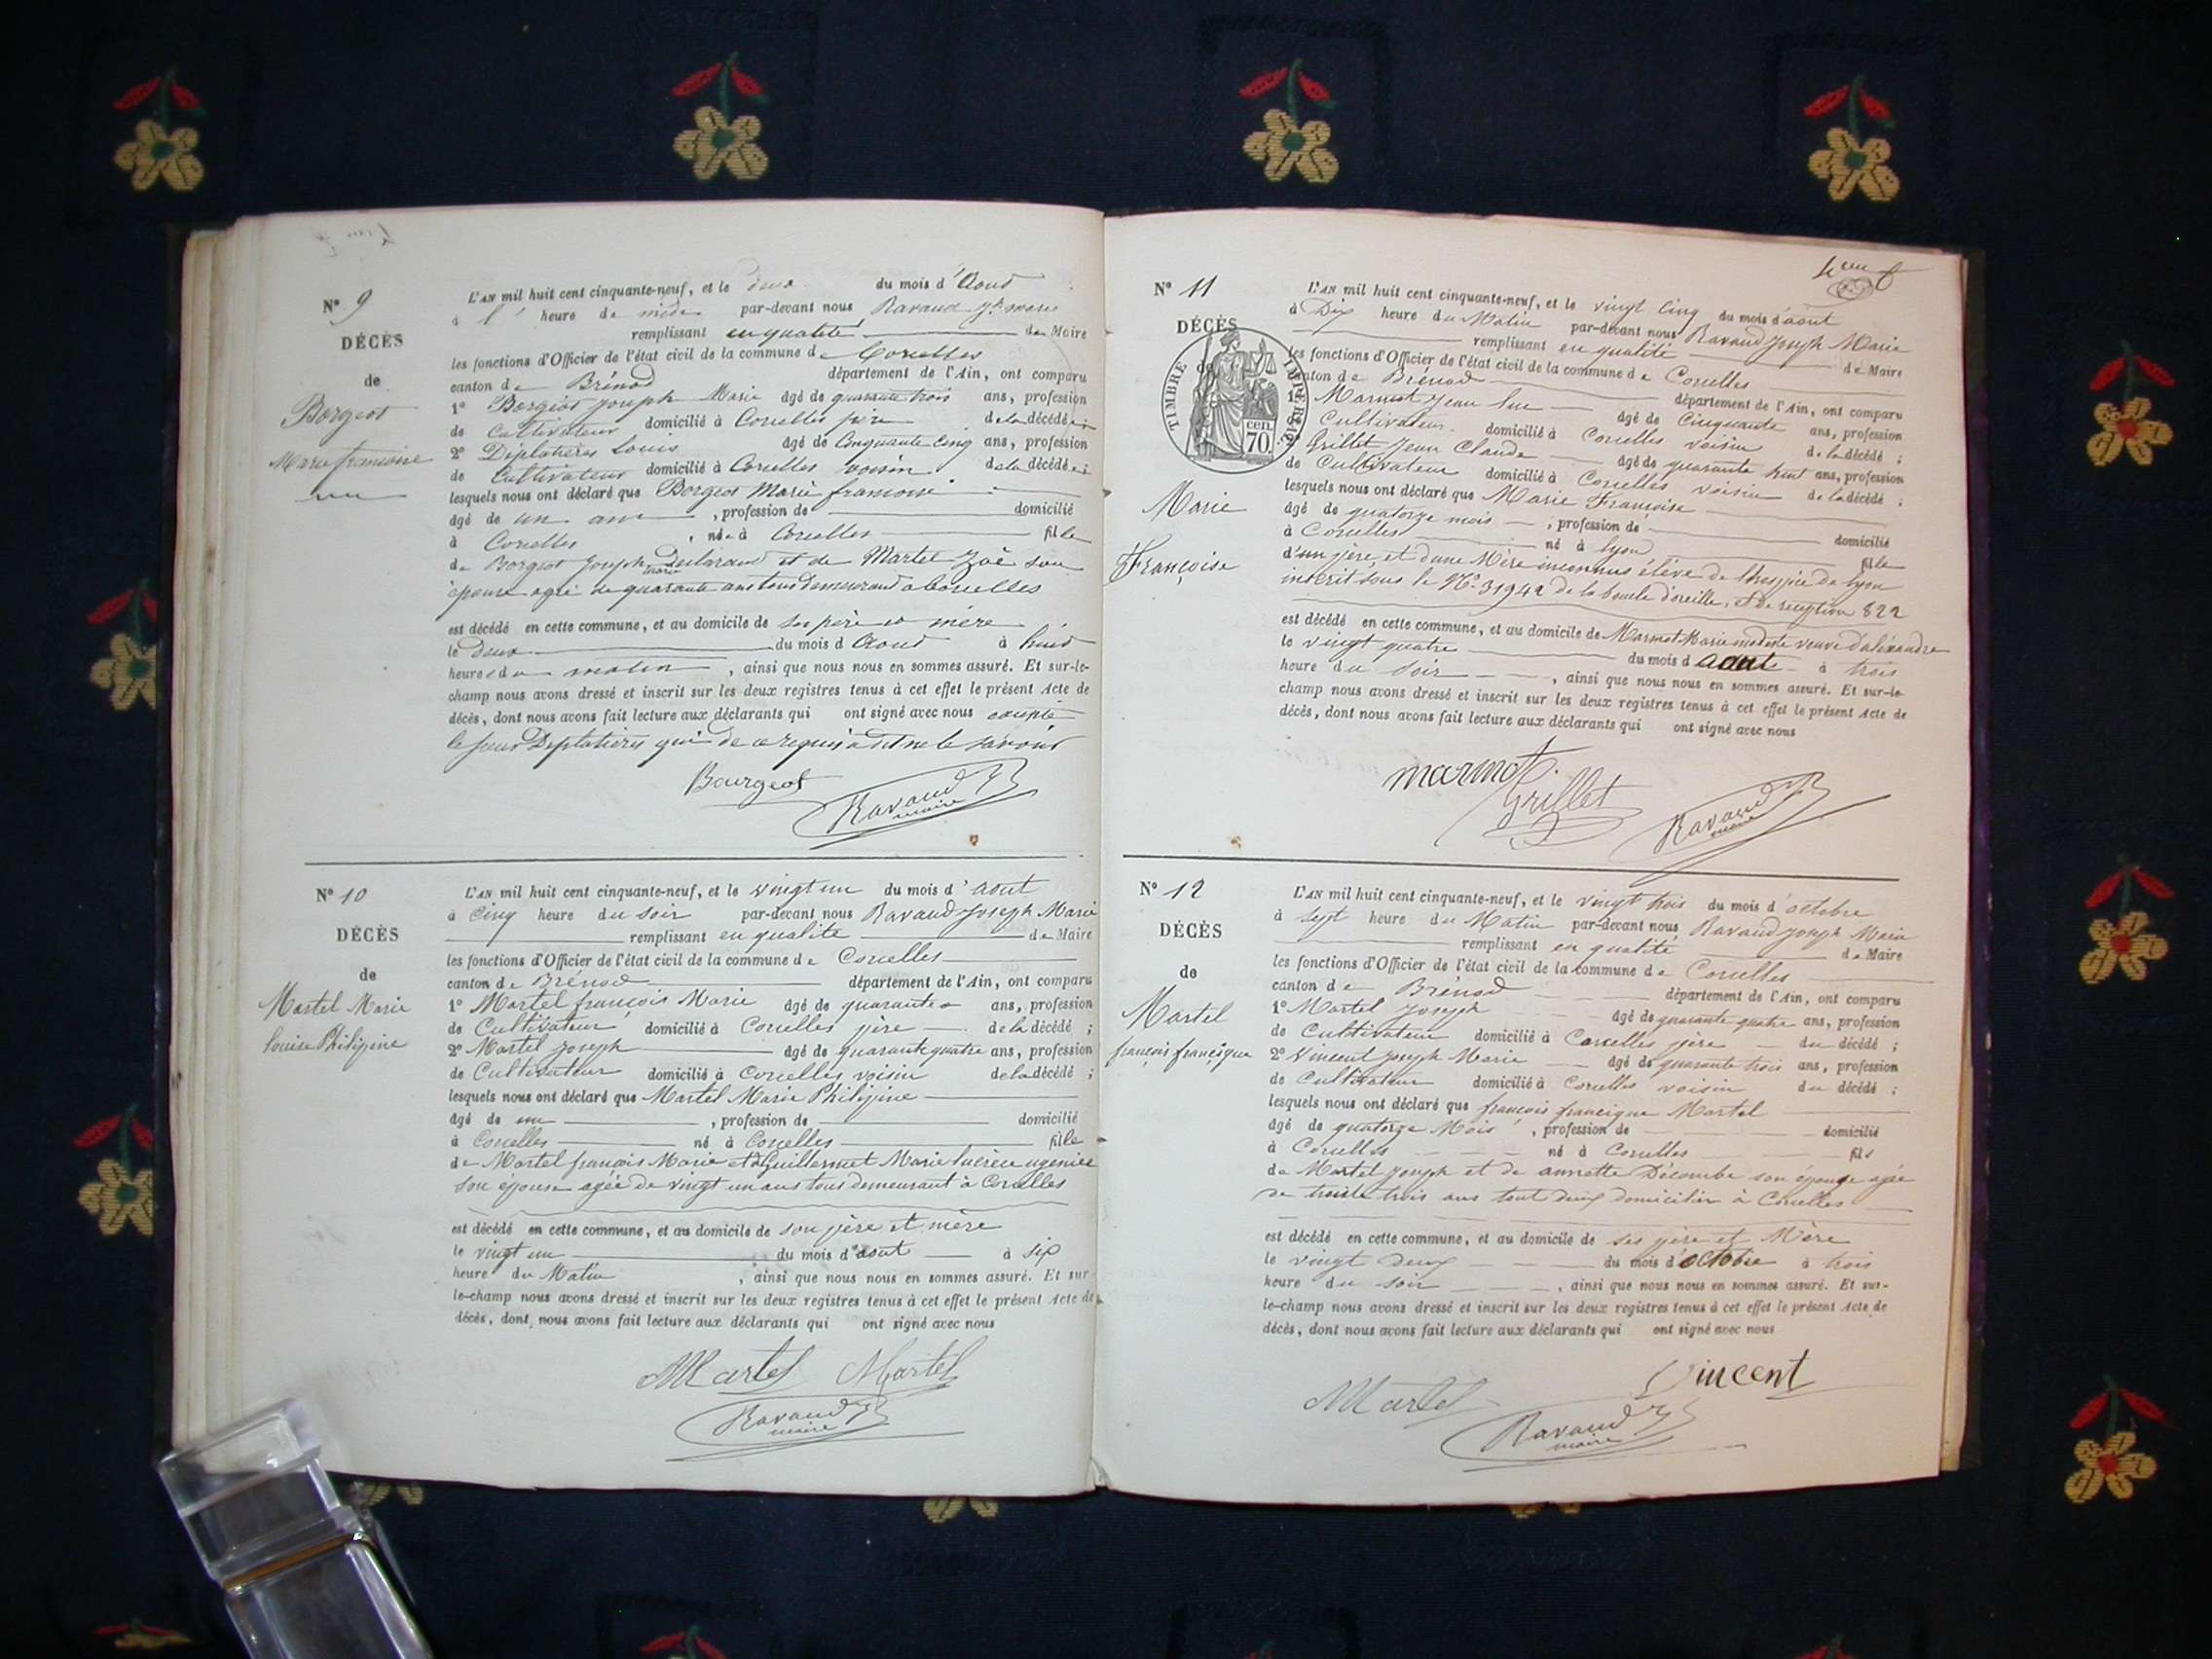 N° 9
DÉCÈS
de
Borgeot
Marie francoise
L'AN mil huit cent cinquante-neuf, et le deux du mois d'Aoud
à l' heure de midi par-devant nous Ravaud Jh marie
remplissant en qualité de Maire
les fonctions d'Officier de l'état civil de la commune de Corcelles
canton de Brénod département de l'Ain, ont comparu
1° Borgeot joseph Marie âgé de quarante trois ans, profession
de Cultivateur domicilié à Corcelles père de la décédé
2° Deplatières Louis âgé de Cinquante cinq ans, profession
de Cultivateur domicilié à Corcelles voisin de la décédé
lesquels nous ont déclaré que Borgeot Marie francoise
âgé de un ans , profession de domicilié
à Corcelles , née à Corcelles fille
de Borgeot Joseph marie déclarant et de Martel Zoé son
épouse agée de quarante ans tous demeurand a corcelles
est décédé en cette commune, et au domicile de ses père et mère
le deux du mois d'Aoud à huid
heures du matin , ainsi que nous nous en sommes assuré. Et sur-le-
champ nous avons dressé et inscrit sur les deux registres tenus à cet effet le présent Acte de
décès, dont nous avons fait lecture aux déclarants qui ont signé avec nous excepté
le sieur Deplatières qui de ce requis a dit ne le savoir
Bourgeot
Ravaud
maire
N° 10
DÉCÈS
de
Martel Marie
louise Philipine
L'AN mil huit cent cinquante-neuf, et le vingt un du mois d'aout
à cinq heure du soir par-devant nous Ravaud Joseph Marie
remplissant en qualité de Maire
les fonctions d'Officier de l'état civil de la commune de Corcelles
canton de Brénod département de l'Ain, ont comparu
1° Martel françois Marie âgé de quarante ans, profession
de Cultivateur domicilié à Corcelles père de la décédé ;
2° Martel Joseph âgé de quarante quatre ans, profession
de Cultivateur domicilié à Corcelles voisin de la décédé ;
lesquels nous ont déclaré que Martel Marie Philipine
âgé de un , profession de domicilié
à Corcelles né à Corcelles fille
de Martel français Marie et de Guillermet Marie
son épouse agée de vingt un ans tous demeurant à Corcelles
est décédé en cette commune, et au domicile de son père et mère
le vingt un du mois d'aout à six
heure du Matin , ainsi que nous nous en sommes assuré. Et sur-
le-champ nous avons dressé et inscrit sur les deux registres tenus à cet effet le présent Acte de
décès, dont nous avons fait lecture aux déclarants qui ont signé avec nous
Martel Martel
Ravaud
maire
N° 11
DÉCÈS
de
TIMBRE IMPÉRIAL
70 cen.
Marie
Françoise
L'AN mil huit cent cinquante-neuf, et le vingt cinq du mois d'aout
à Dix heure du Matin par-devant nous Ravaud Joseph Marie
remplissant en qualité de Maire
les fonctions d'Officier de l'état civil de la commune de Corcelles
canton de Brénod département de l'Ain, ont comparu
1° Marmot Jean luc âgé de Cinquante ans, profession
Cultivateur domicilié à Corcelles voisin de la décédé ;
Grillet Jean Claude âgé de quarante huit ans, profession
de Cultivateur domicilié à Corcelles voisin de la décédé ;
lesquels nous ont déclaré que Marie Françoise
âgé de quatorze mois , profession de domicilié
à Corcelles né à lyon fille
d'un père, et d'une Mère inconnus élève de l'hospice de lyon
inscrit sous le N° 31942 de la boucle d'oreille, et de reception 822
est décédé en cette commune, et au domicile de Marmot Marie modeste veuve d'aléxandre
le vingt quatre du mois d aout à trois
heure du soir , ainsi que nous nous en sommes assuré. Et sur-le-
champ nous avons dressé et inscrit sur les deux registres tenus à cet effet le présent Acte de
décès, dont nous avons fait lecture aux déclarants qui ont signé avec nous
marmot
Grillet
Ravaud
maire
N° 12
DÉCÈS
de
Martel
françois francique
L'AN mil huit cent cinquante-neuf, et le vingt trois du mois d'octobre
à sept heure du Matin par-devant nous Ravaud Joseph Marie
remplissant en qualité de Maire
les fonctions d'Officier de l'état civil de la commune de Corcelles
canton de Brénod département de l'Ain, ont comparu
1° Martel Joseph âgé de quarante quatre ans, profession
de Cultivateur domicilié à Corcelles père du décédé ;
2° Vincent Joseph Marie âgé de quarante trois ans, profession
de Cultivateur domicilié à Corcelles voisin du décédé ;
lesquels nous ont déclaré que françois francique Martel
âgé de quatorze Mois , profession de domicilié
à Corcelles né à Corcelles fils
de Martel Joseph et de annette Décombe son épouse agée
de trente trois ans tout deux domicilier à Corcelles
est décédé en cette commune, et au domicile de ses père et Mère
le vingt Deux du mois d'octobre à trois
heure du soir , ainsi que nous nous en sommes assuré. Et sur-
le-champ nous avons dressé et inscrit sur les deux registres tenus à cet effet le présent Acte de
décès, dont nous avons fait lecture aux déclarants qui ont signé avec nous
Martel
Vincent
Ravaud
maire